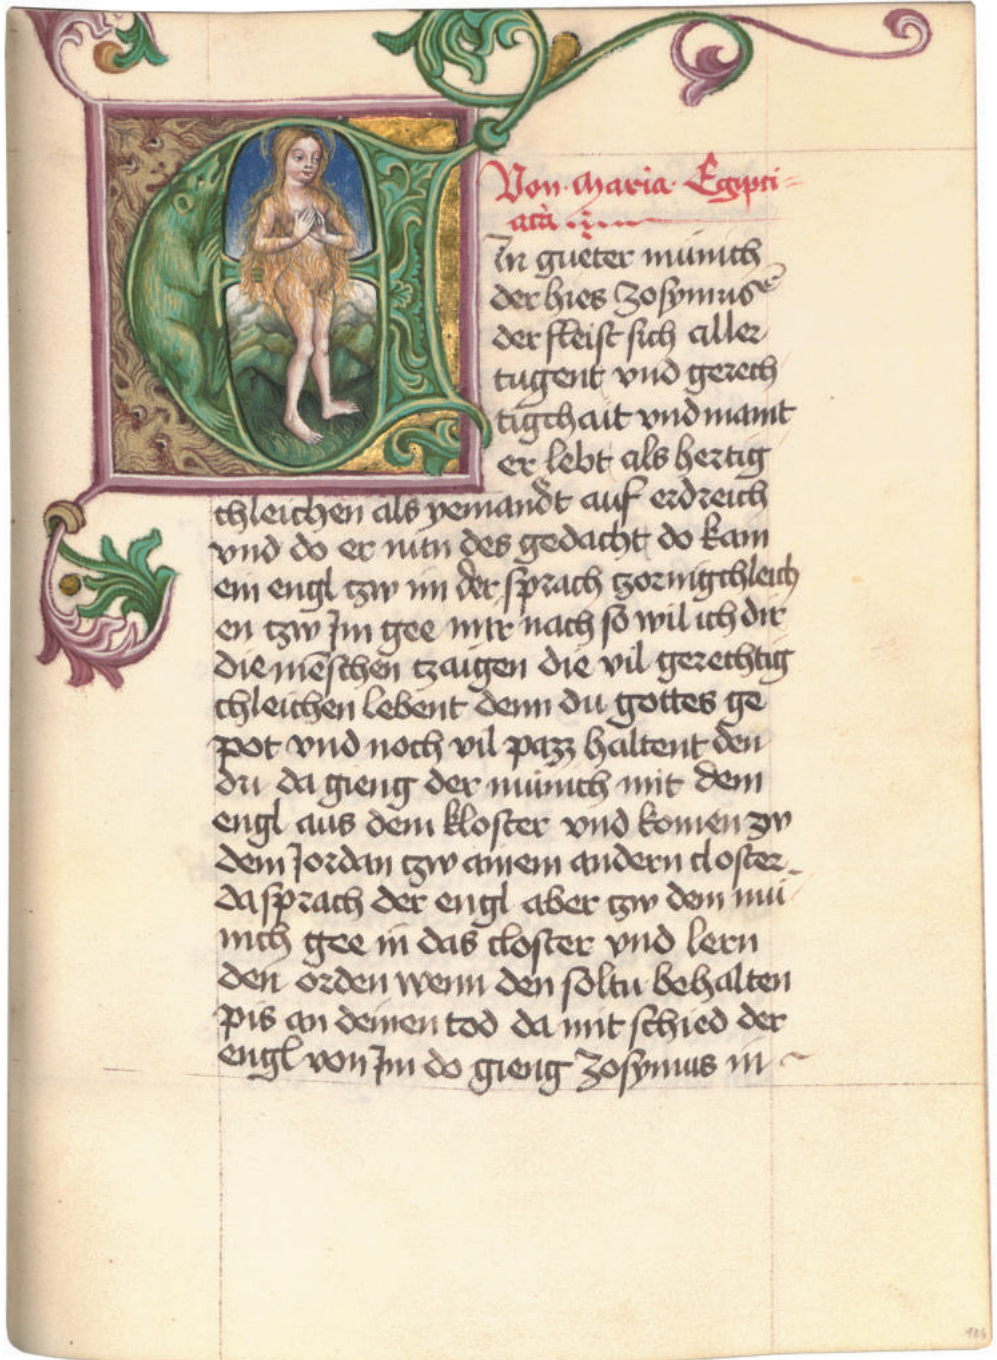 Von Maria Egipci-
aca
E
In gueter münich
der hies Zosymus
der fleist sich aller
tugent vnd gerech
tigchait vnd maint
er lebt als hertig
chleichen als yemandt auf erdreich
vnd do er nün des gedacht do kam
ein engl tzw im der sprach tzornigchleich
en tzw Im gee mir nach so wil ich dir
die mēschen tzaigen die vil gerechtig
chleichen lebent denn du gottes ge
pot vnd noch vil pazz haltent den
du da gieng der münich mit dem
engl aus dem kloster vnd komen zw
dem Jordan tzw ainem andern closter
da sprach der engl aber tzw dem mü
nich gee in das closter vnd lern
den orden wenn den soltu behalten
pis an deinen tod da mit schied der
engl von Im do gieng Zosymus in
106